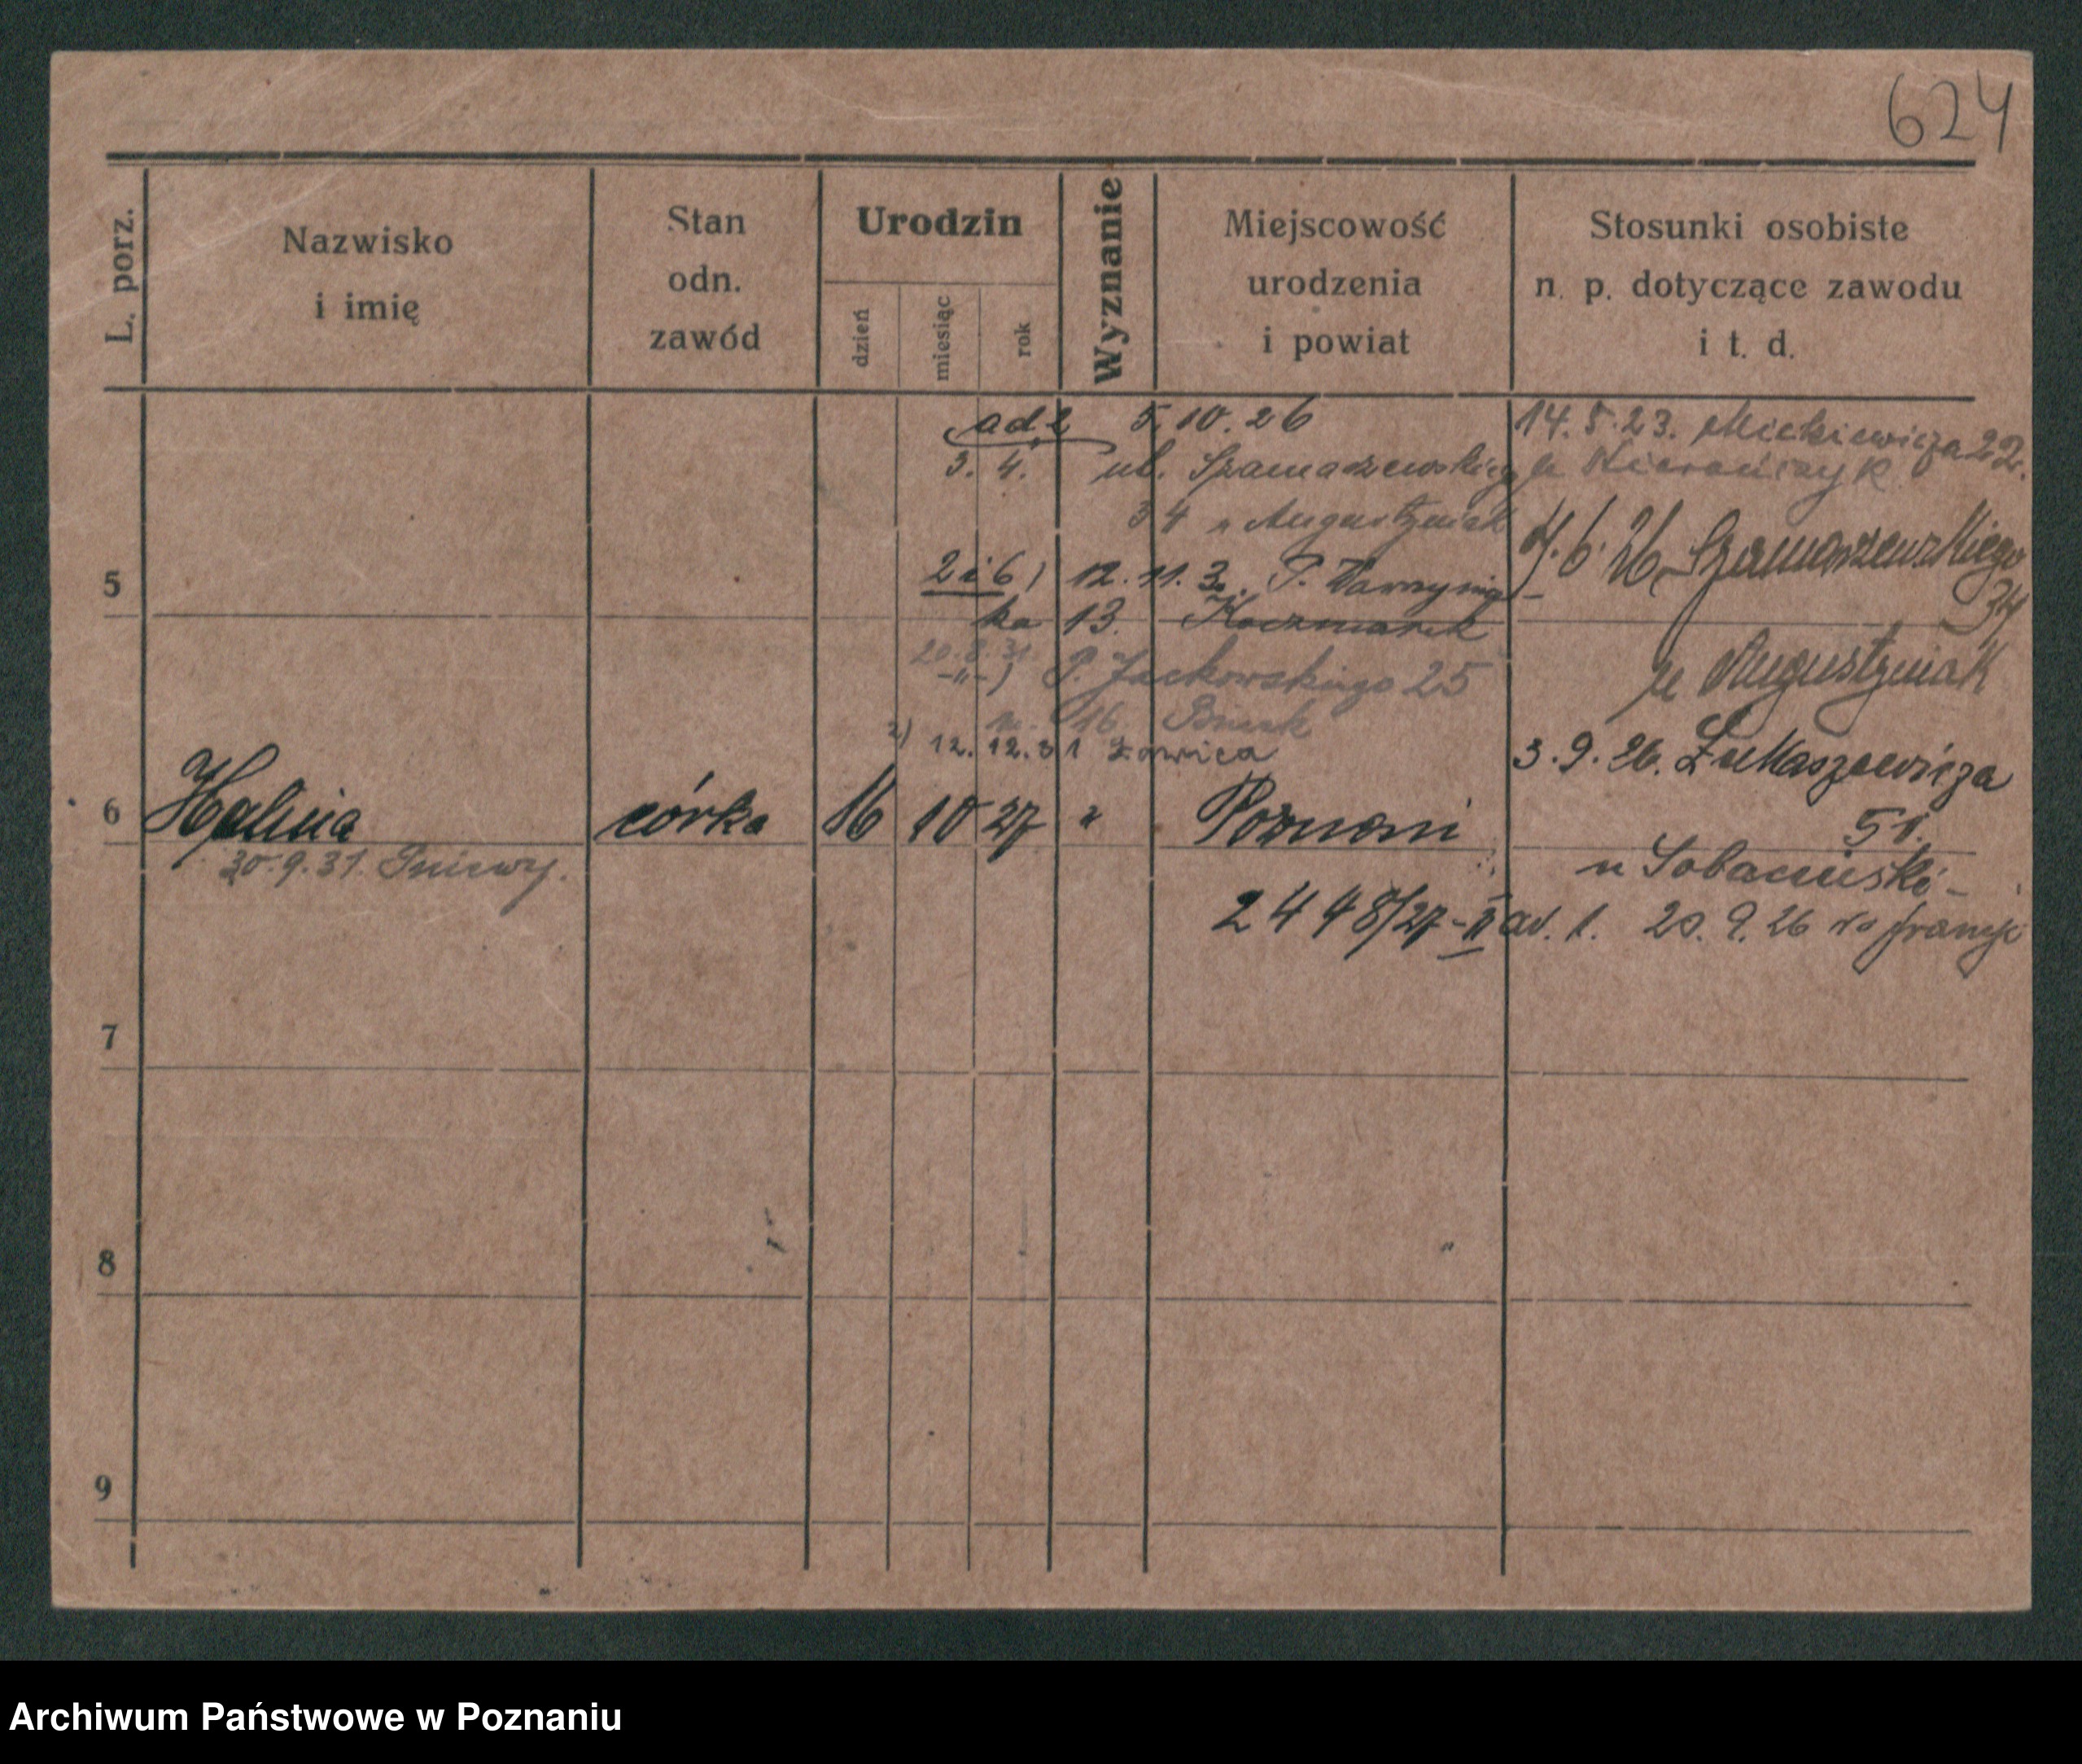 624
L. porz.
Nazwisko
i imię
Stan
odn.
zawód
Urodzin
dzień
miesiąc
rok
Wyznanie
Miejscowość
urodzenia
i powiat
Stosunki osobiste
n. p. dotyczące zawodu
i t. d.
ad. 2 5.10.26
3. 4. ul. Szamarzewskiego
34 u Augustyniak
5
2 i 6) 12.11.3 P. Wawrzynia-
ka 13. Kaczmarek
20.8.31
-„-) P. Jackowskiego 25
m. 16
2) 12.12.31 Ławica
14.5.23. Mickiewicza 22.
4.6.26 Szamarzewskiego
34
u Augustyniak
3.9.26. Łukaszewicza
51.
u
ad. 1. 20.9.26 do
6 Halina córka 16 10 27 „ Poznań
30.9.31. Pniewy.
2448/27-II
7
8
9
Archiwum Państwowe w Poznaniu